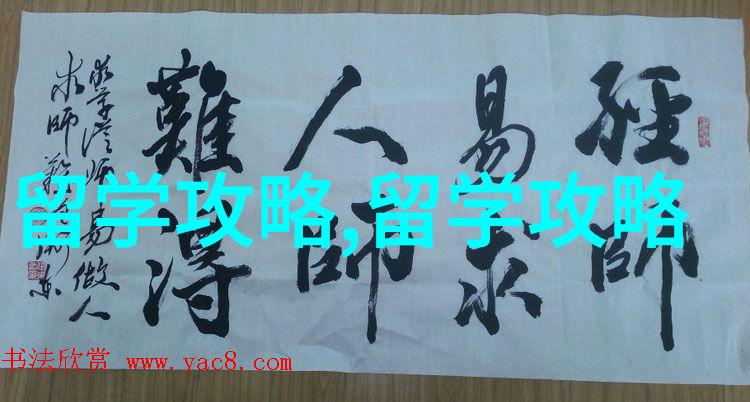 經師
易求
人師
難得
師易做人
求師難
留学攻略,留学攻略
书法欣赏 www.yac8.com